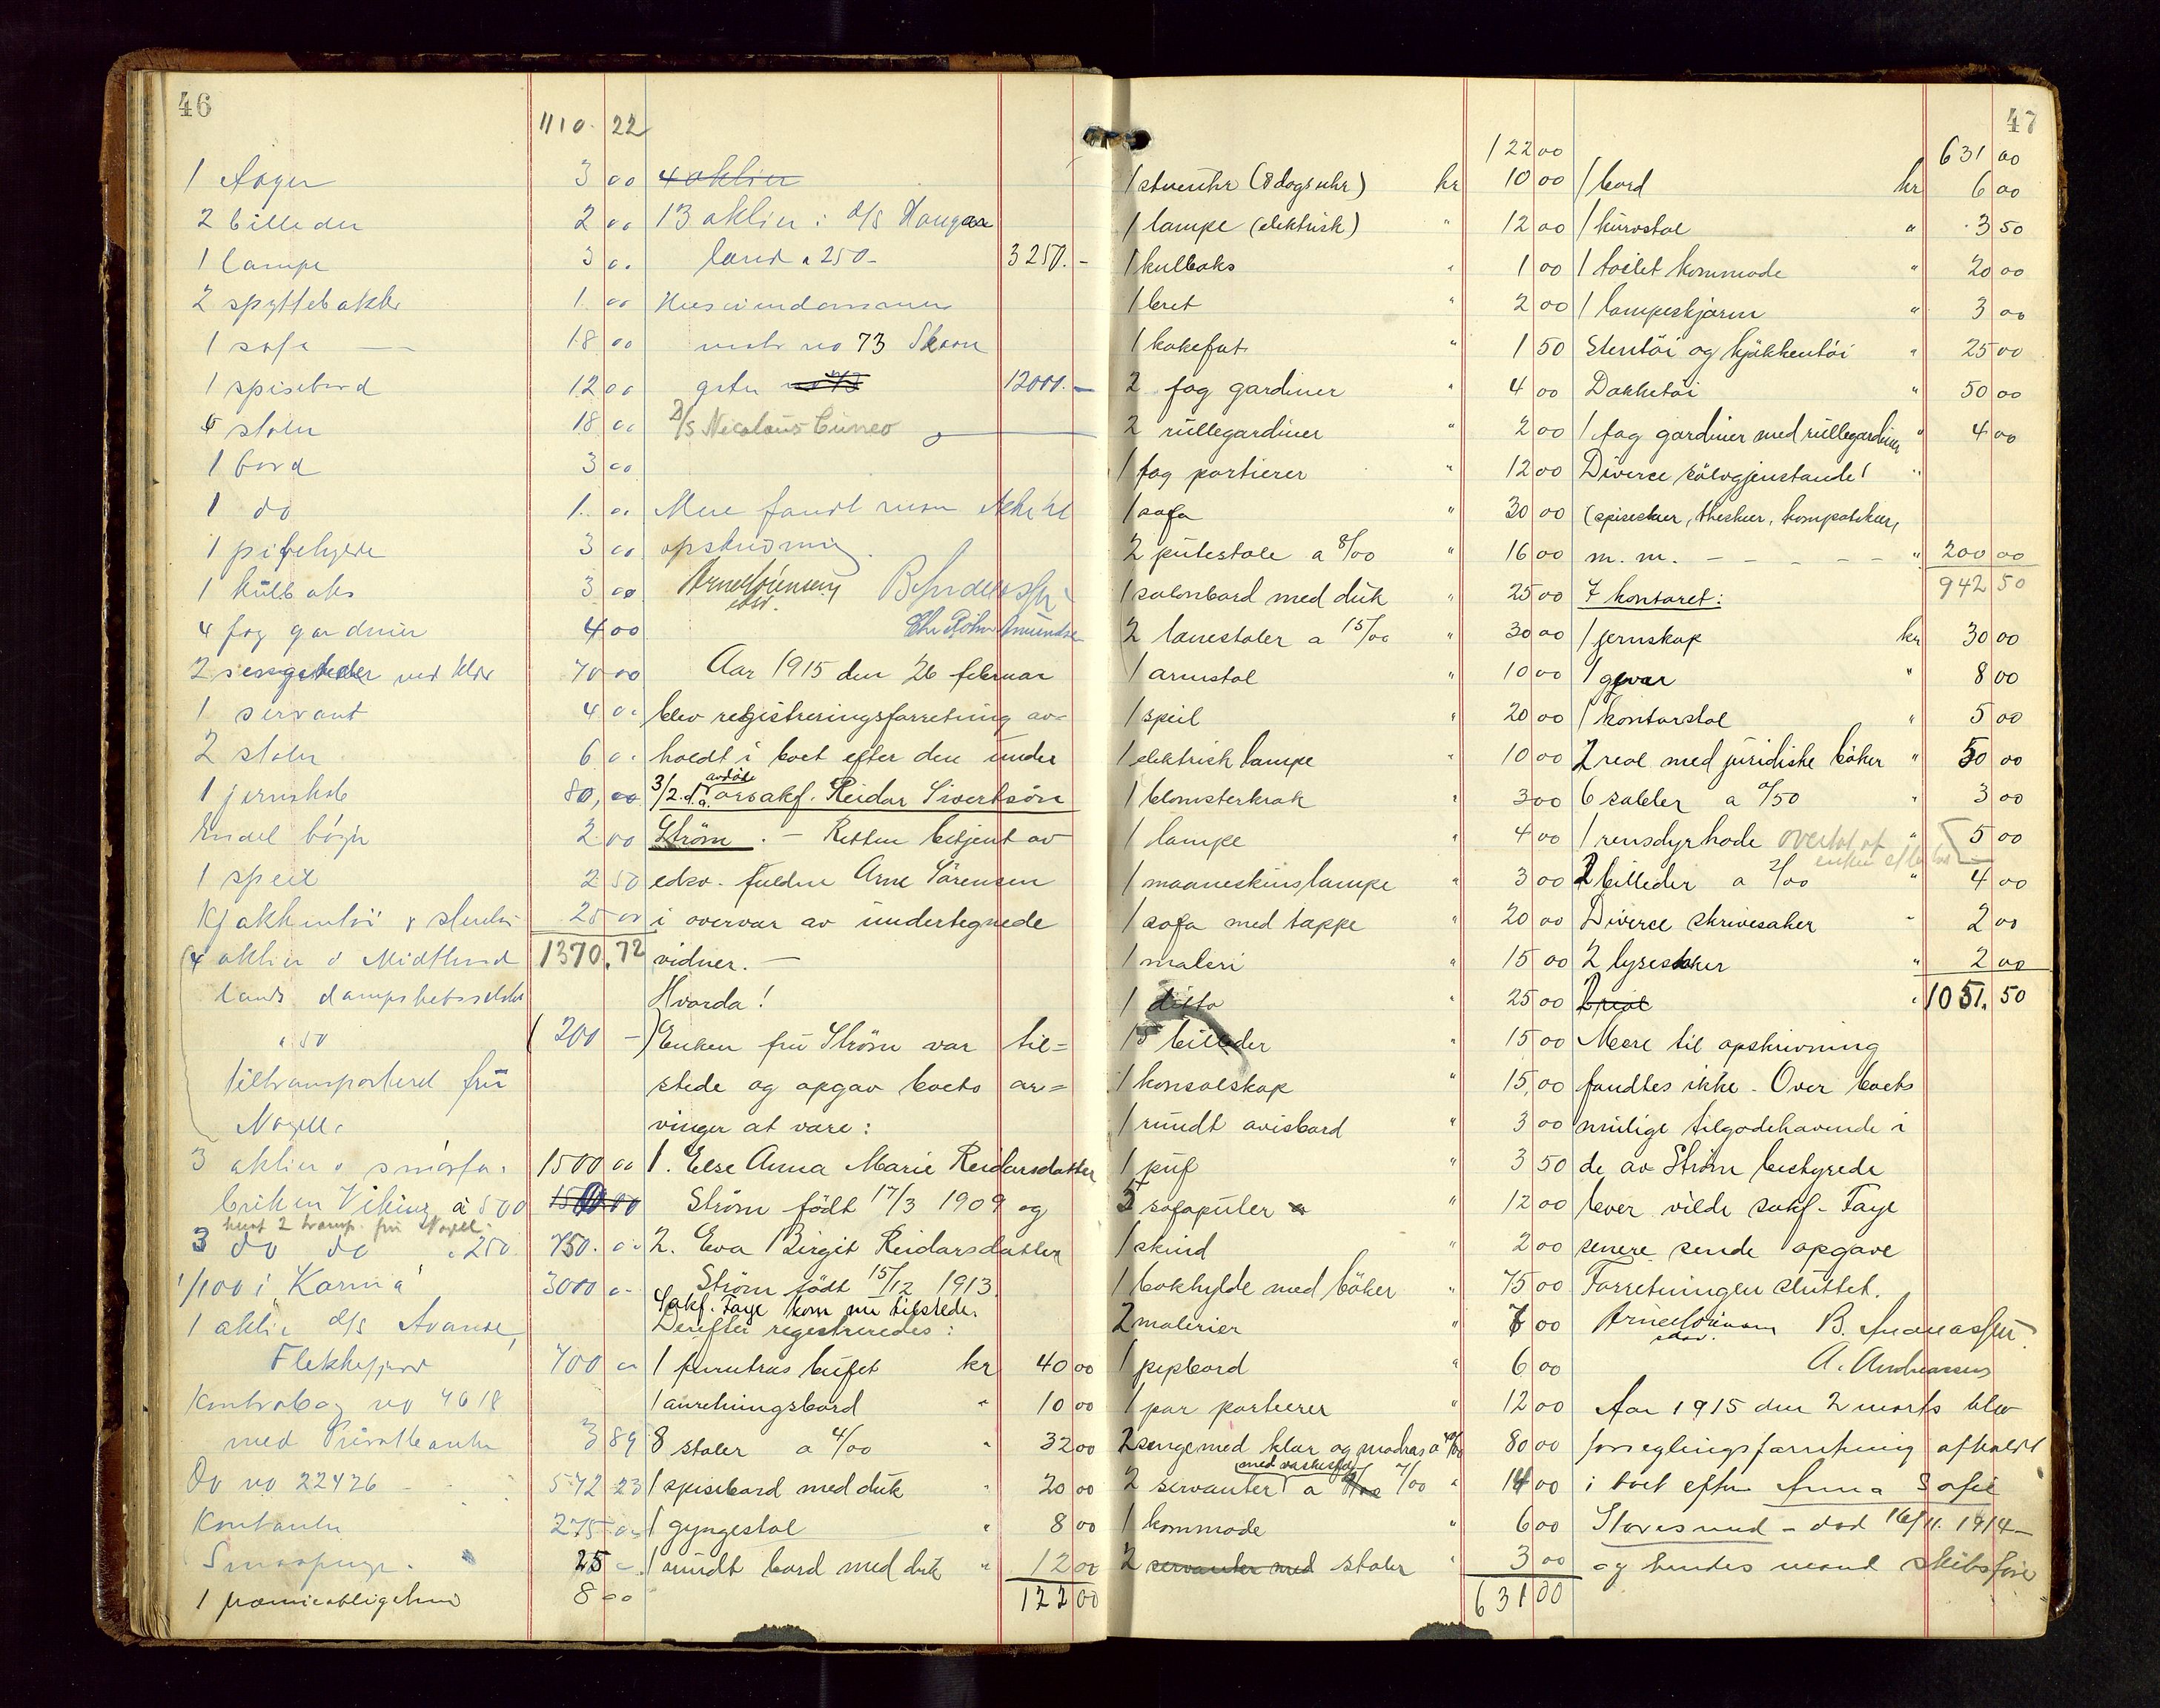 46
1110. 22
1 2 billeder 2 00
1 lampe 3 0.
2 spyttebakker 1. 00
1 sofa 18 00
1 spisebord 12 00
6 stoler 18 00
1 bord 3 00
1 do 1. 0.
1 pipehylde 3 00
1 kulboks 3 00
4 fag gardiner 4 00
2 senge med klær 70 00
1 servant 4 0.
2 stoler 6 0.
1 jernskab 80,00
Endel bøger 2 00
1 speil 2 50
Kjøkkentøi & stentøi 25 00
1370.72
4 aktier i Midthordlands dampskibsselskab
a 50 (200 -)
tiltransporteret fru
Nagell.
3 aktier i smørfabriken Viking à 500 1500 00
1500 00
3 do do a 250 750. 0.
1/100 i "Karma" 3000 0.
1 aktie d/s Avance,
Flekkefjord 700 00
Kontrabog no 4618
med Privatbanken 3 89
Do no 22426 572 23
Kontanter 275 0.
Smaapenge. 25 -
1 præmieobligation 8 00
4 aktier
13 aktier i d/s Haugaland a 250- 3250.-
Huseiendommen
matr no 73 Skaregaten 12000.-
D/S Nicolaus Cuneo
Mere fandt man ikke til
opskrivning.
Arne Sörensen
edsv.
B. Andreassen
Chr. Röhr Amundsen
Aar 1915 den 26 februar
blev registreringsforretning av-
holdt i boet efter den under
3/2 d.a. avdöde orsakf. Reidar Sivertsön
Ström. - Retten betjent av
edsv. fuldm Arne Sörensen
i overvær av undertegnede
vidner. -
Hvorda!
Enken fru Ström var til=
stede og opgav boets ar=
vinger at være:
1. Else Anna Marie Reidarsdatter
Ström födt 17/3 1909 og
2. Eva Birgit Reidarsdatter
Ström födt 15/12 1913.
Sakf. Faye kom nu tilstede.
Derefter registreredes:
1 furutræs bufet kr 40 00
1 anretningsbord " 10 00
8 stoler a 4/00 " 32 00
1 spisebord med duk " 20 00
1 gyngestol " 8 00
1 rundt bord med duk " 12 00
122 00
47
122 00
1 stueuhr (8 dags uhr) kr 10 00
1 lampe (elektrisk) " 12 00
1 kulboks " 1 00
1 bret " 2 00
1 kakefat " 1 50
2 fag gardiner " 4 00
2 rullegardiner " 2 00
1 fag portierer " 12 00
1 sofa " 30 00
2 putestole a 8/00 " 16 00
1 salonbord med duk " 25 00
2 lænestoler a 15/00 " 30 00
1 armstol " 10 00
1 speil " 20 00
1 elektrisk lampe " 10 00
1 blomsterkrak " 3 00
1 lampe " 4 00
1 maaneskinslampe " 3 00
1 sofa med tæppe " 20 00
1 maleri " 15 00
1 ditto " 25 00
15 billeder " 15 00
1 konsolskap " 15,00
1 rundt avisbord " 3 00
1 puf " 3 50
5 sofaputer " 12 00
1 skind " 2 00
1 bokhylde med böker " 75 00
2 malerier " 7 00
1 pipbord " 6 00
1 par portierer " 12 00
2 senge med klær og madras a 40/00 80 00
2 servanter med vaskestel a 7/00 " 14 00
1 kommode " 6 00
2 servanter med stoler " 3 00
631 00
631 00
1 bord kr 6 00
1 kurvstol " 3 50
1 toilet kommode " 20 00
1 lampeskjærm " 3 00
Stentöi og kjökkentöi " 25 00
Dækketöi " 50 00
1 fag gardiner med rullegardiner " 4 00
Diverse sölvgjenstande!
(spiseskeer, theskeer, kompotskeer,
m.m. - - - - - " 200 00
942 50
I kontoret:
1 jernskap kr 30 00
1 gevær " 8 00
1 kontorstol " 5 00
2 reol med juridiske böker " 50 00
6 sabler a 0/50 " 3 00
1 rensdyrhode overtat af enken " 5 00
2 billeder a 2/00 " 4 00
Diverse skrivesaker " 2 00
2 lysestaker " 2 00
1 reol " 1051.50
Mere til opskrivning
fandtes ikke. Over boets
mulige tilgodehavende i
de av Ström bestyrede
boer vilde sakf. Faye
senere sende opgave
Forretningen sluttet.
Arne Sörensen
edsv.
B. Andreassen
A. Andreassen
Aar 1915 den 2 marts blev
forseglingsforretning afholdt
i boet efter Anna Sofie
Storesund - död 16/11. 1914 -
og hendes mand skibsförer